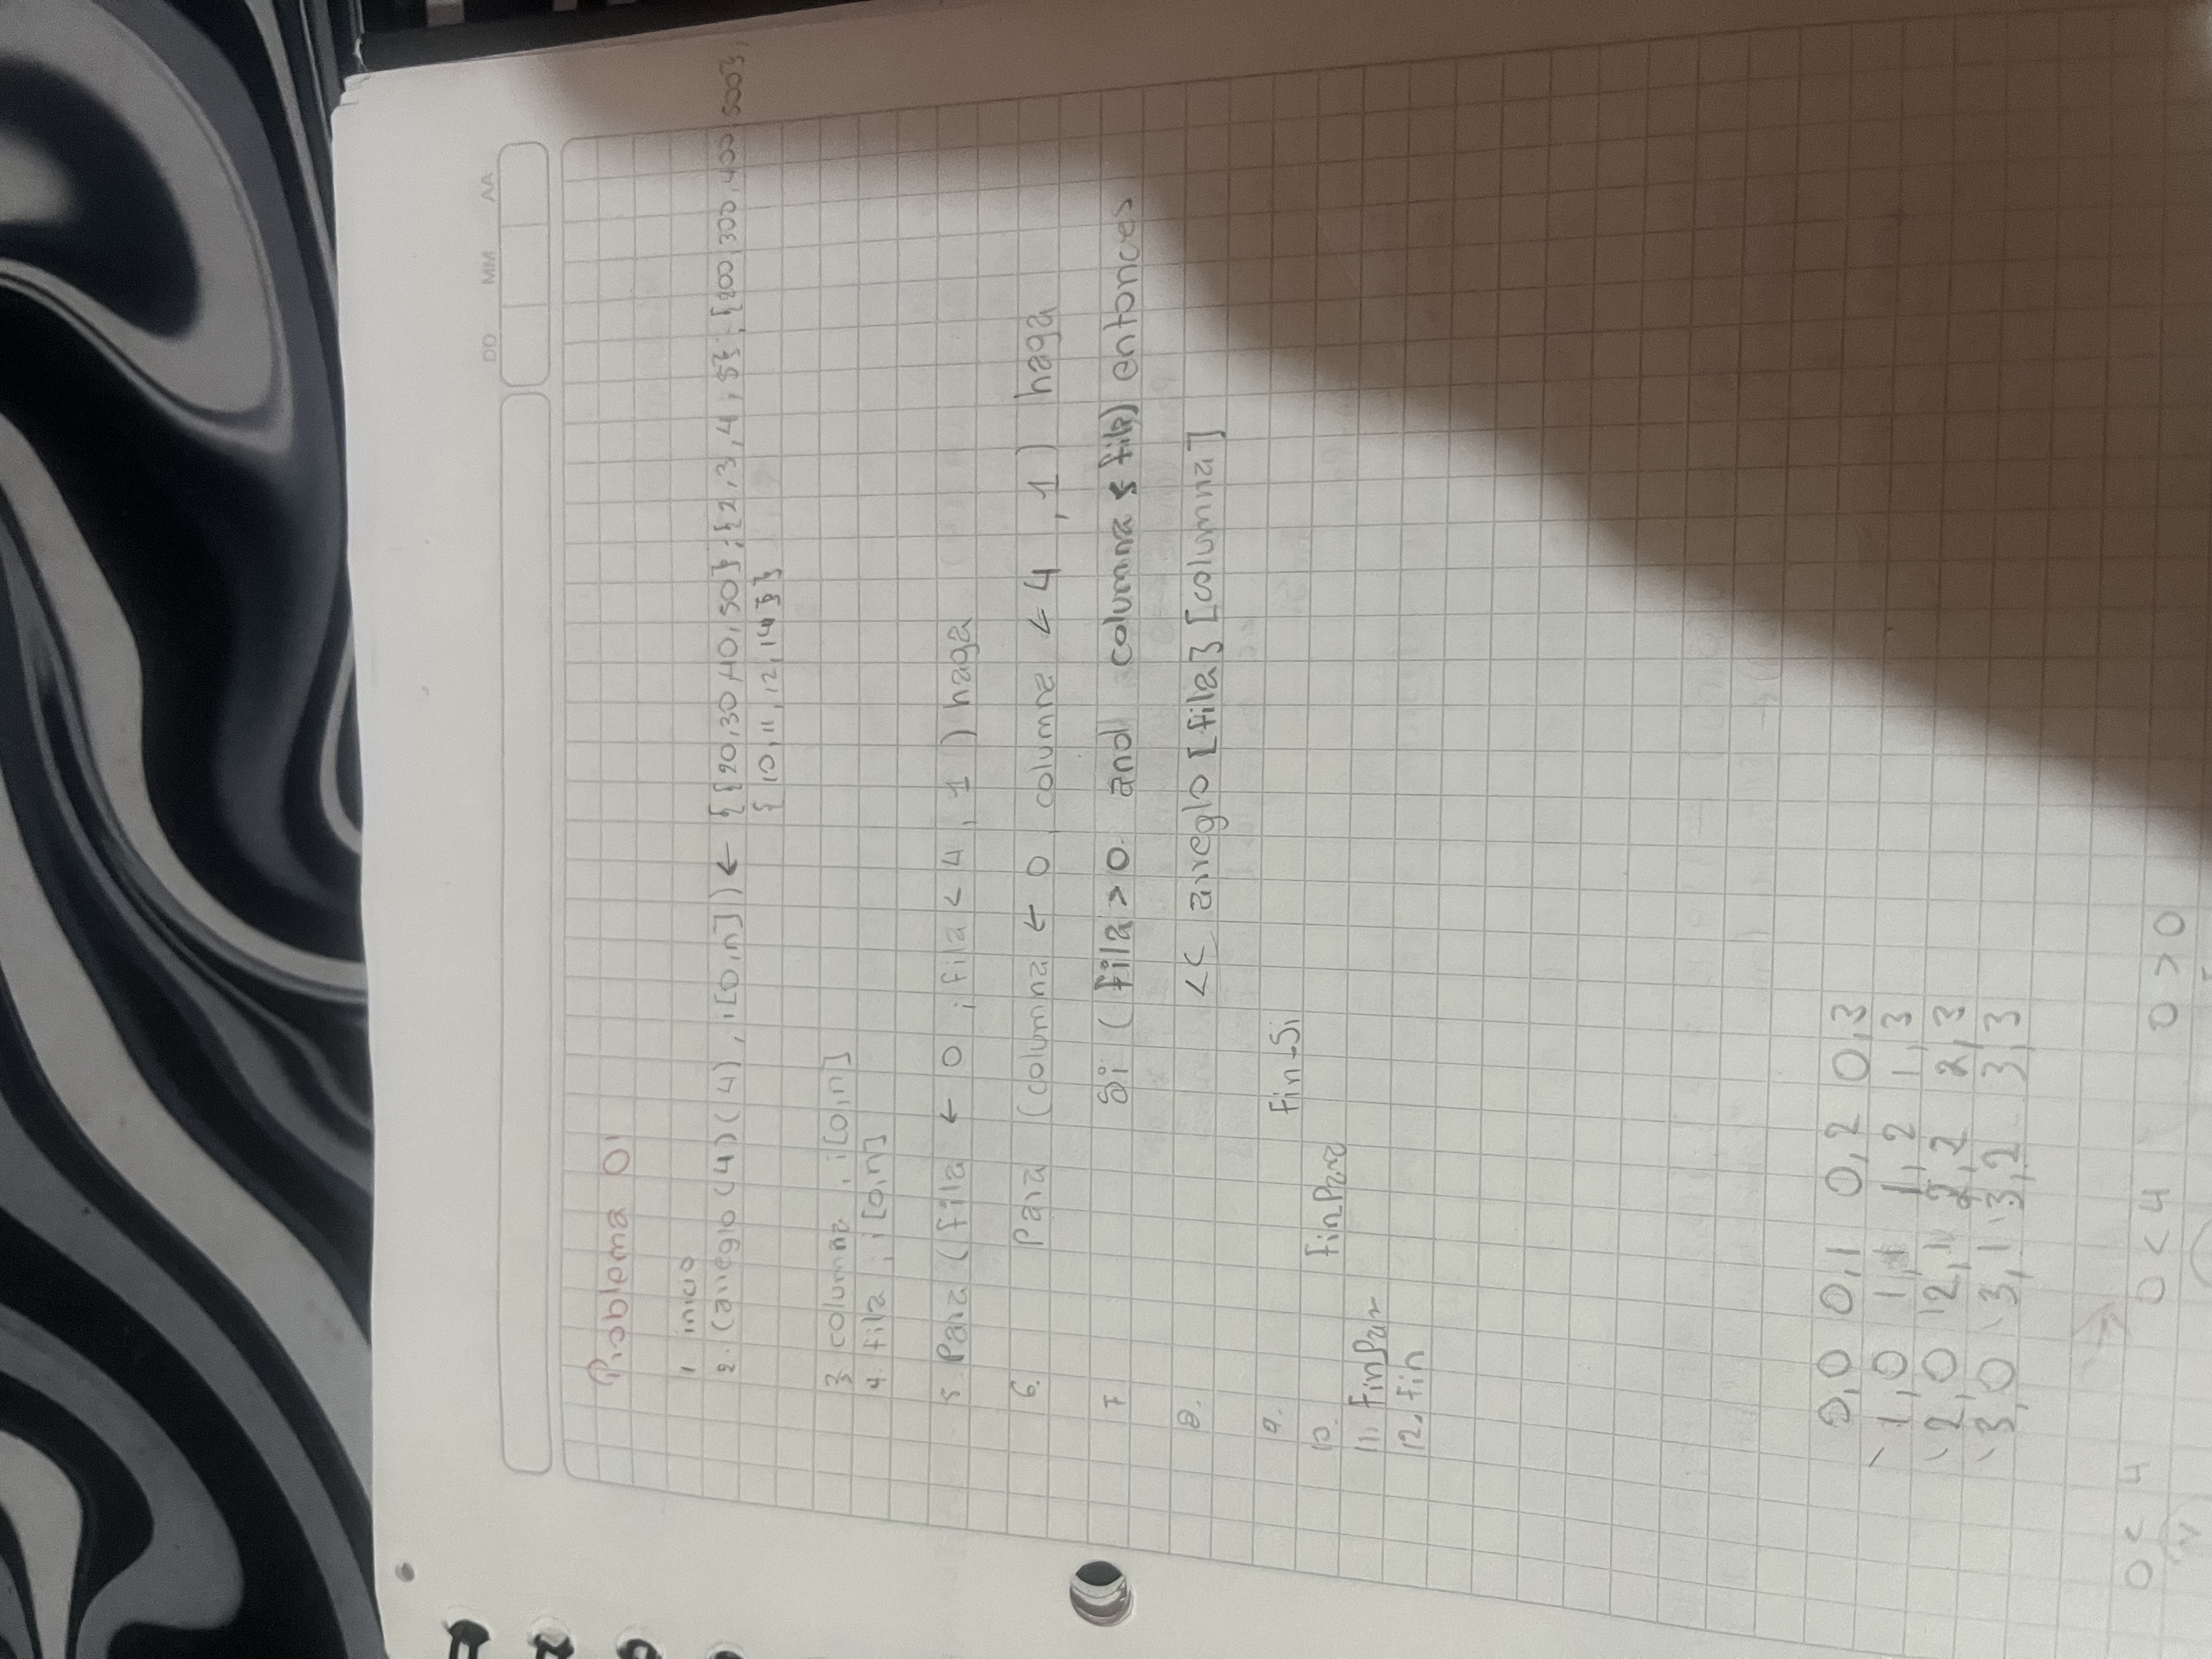 DD MM AA
Problema 01
1 inicio
2. (arreglo (4)(4), i[0,n]) ← {{20,30,40,50};{2,3,4,5};{200,300,400,500},
{10,11,12,14}}
3 columna , i[0,n]
4. fila , i[0,n]
5. Para (fila ← 0 ; fila < 4 , 1 ) haga
6. Para (columna ← 0, columna < 4 , 1 ) haga
7 Si (fila > 0 and columna fila) entonces
8. << arreglo [fila} [columna]
9. Fin-Si
10. finPara
11. FinPar
12. fin
0,0 0,1 0,2 0,3
1,0 1,1 1,2 1,3
2,0 2,1 2,2 2,3
3,0 3,1 3,2 3,3
0 < 4 0 < 4 0 > 0